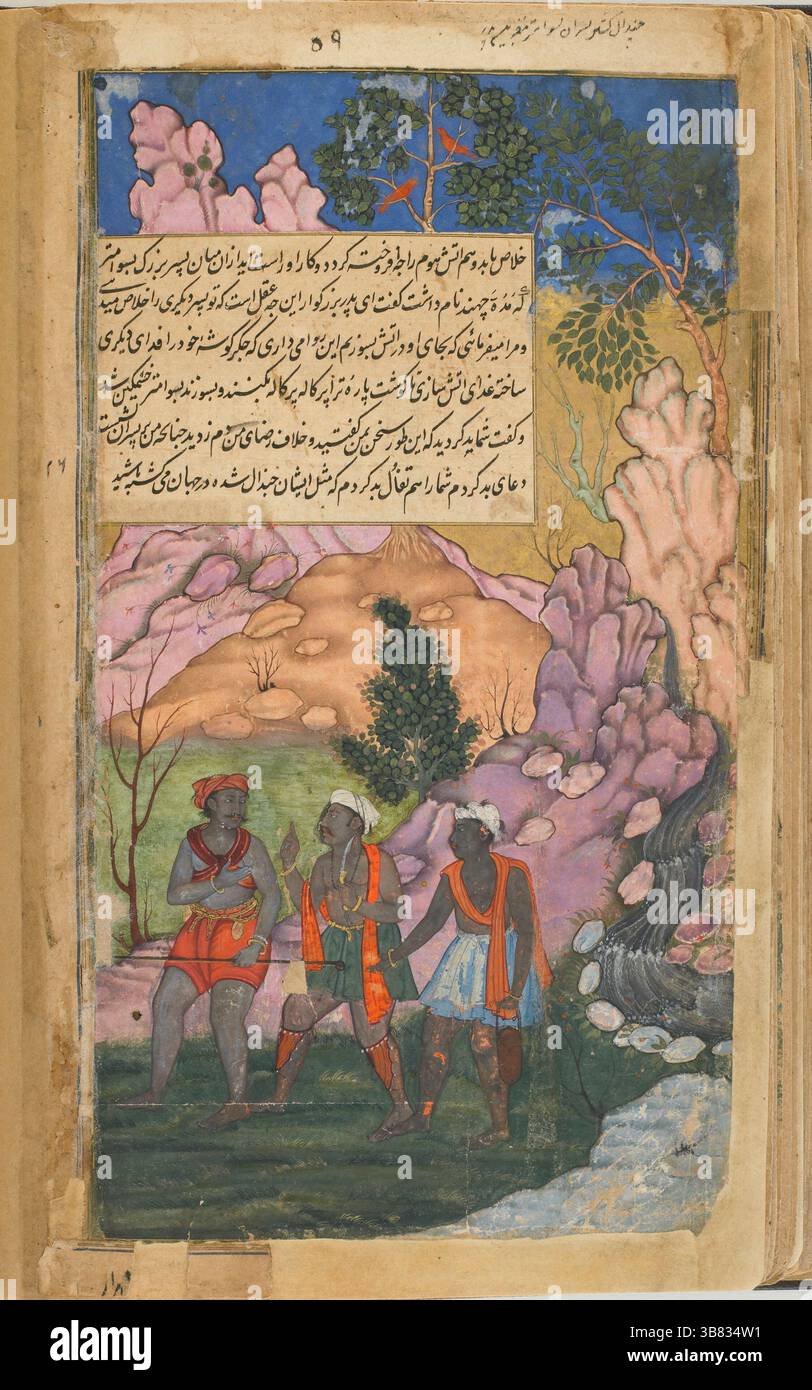 ۵۹
خلاص یابد و هم آتش هوم راجه افروخته گردد و کار او راست آید ازان میان پسر بزرگ بسوامتر
که مده چهند نام داشت گفت ای پدر بزرگوار این چه عقل است که تو پسر دیگری را خلاص میدهی
و مرا میفرمائی که بجای او در آتش بسوزیم این روا می داری که جگر گوشه خود را فدای دیگری
ساخته غذای آتش سازی گوشت پاره ترا پرکاله پرکاله کنند و بسوزند بسوامتر خشمگین شد
و گفت شما بد کردید که این طور سخن بمن گفتید و خلاف رضای من دم زدید چنانچه من پسران بشست
دعای بد کردم شما را هم تفأل بد کردم که مثل ایشان چندال شده در جهان می گشته باشید
۲۶
alamy
Image ID: 3B834W1
www.alamy.com